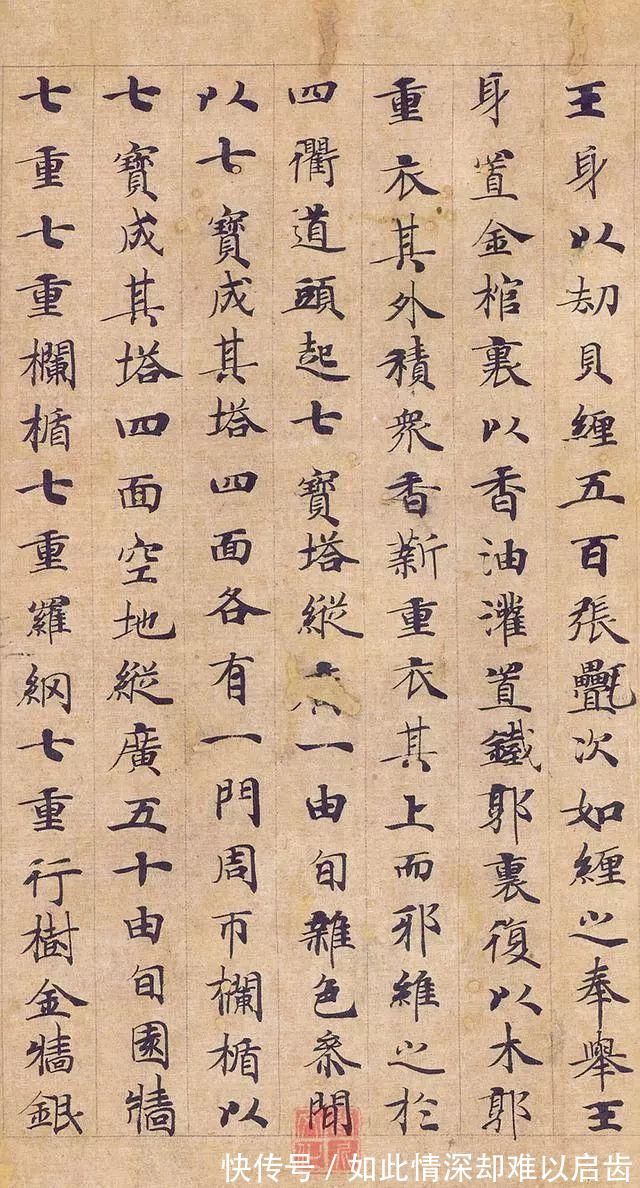 王身以劫貝纏五百張疊次如纏之奉舉王
身置金棺裏以香油灌置鐵郭裏復以木郭
重衣其外積眾香薪重衣其上而耶維之於
四衢道頭起七寶塔縱一由旬雜色參間
以七寶成其塔四面各有一門周帀欄楯以
七寶成其塔四面空地縱廣五十由旬園牆
七重七重欄楯七重羅網七重行樹金牆銀
快传号 / 如此情深却难以启齿